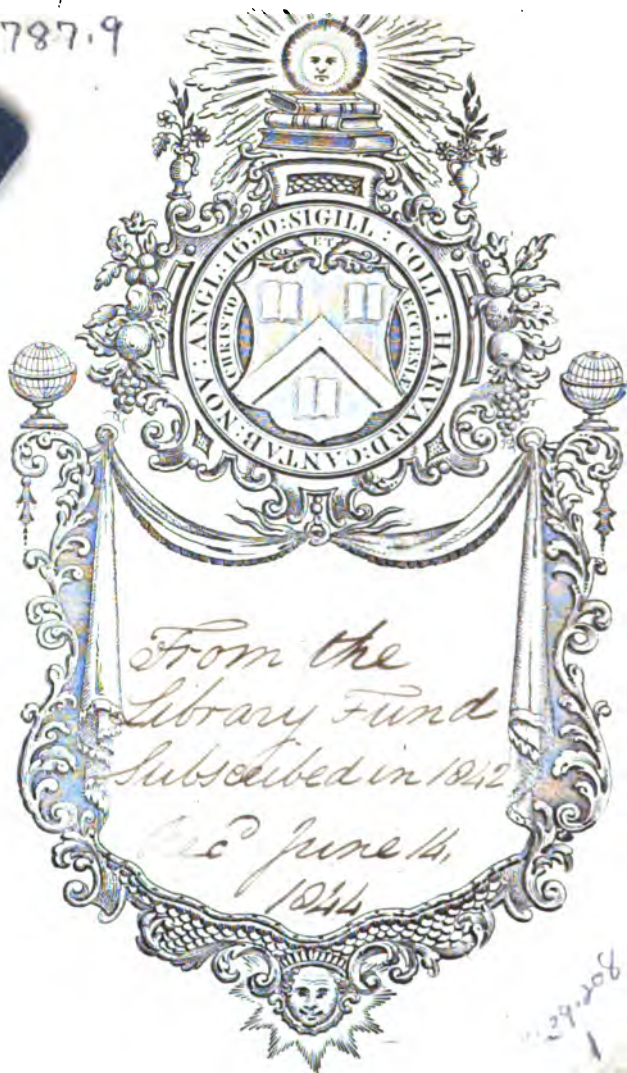 787.9
SIGILL : COLL : HARVARD : CANTAB : NOV : ANGL : 1650 :
CHRISTO ET ECCLESIÆ
From the
Library Fund
Subscribed in 1842
June 14,
1844